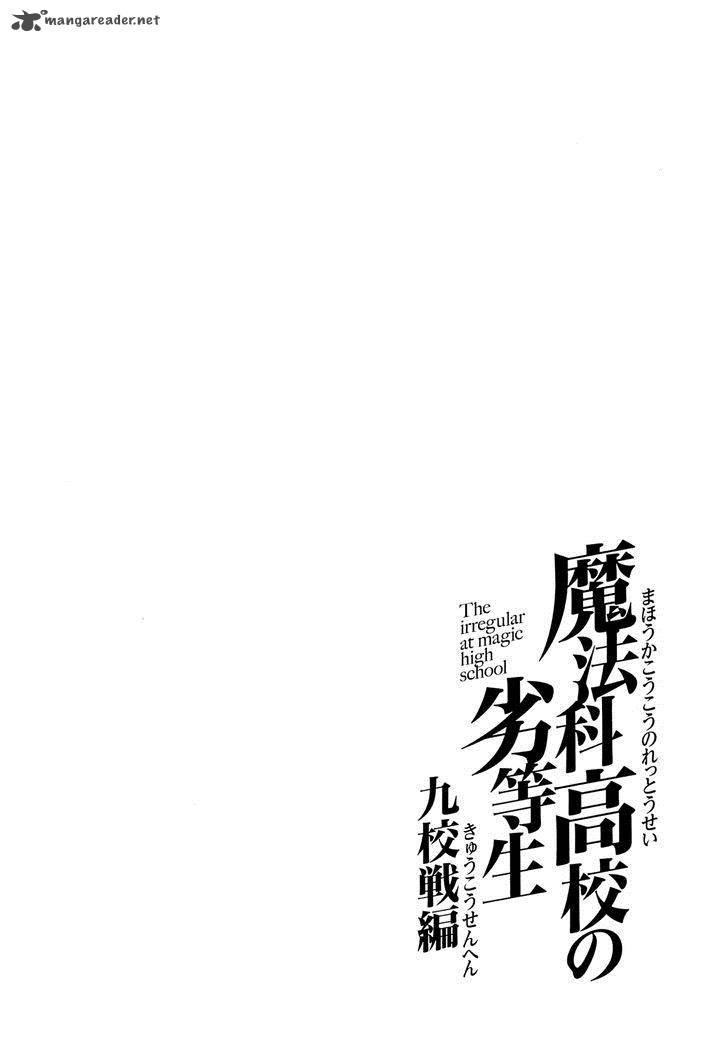 mangareader.net
まほうかこうこうのれっとうせい
魔法科高校の
劣等生
The
irregular
at magic
high
school
きゅうこうせんへん
九校戦編